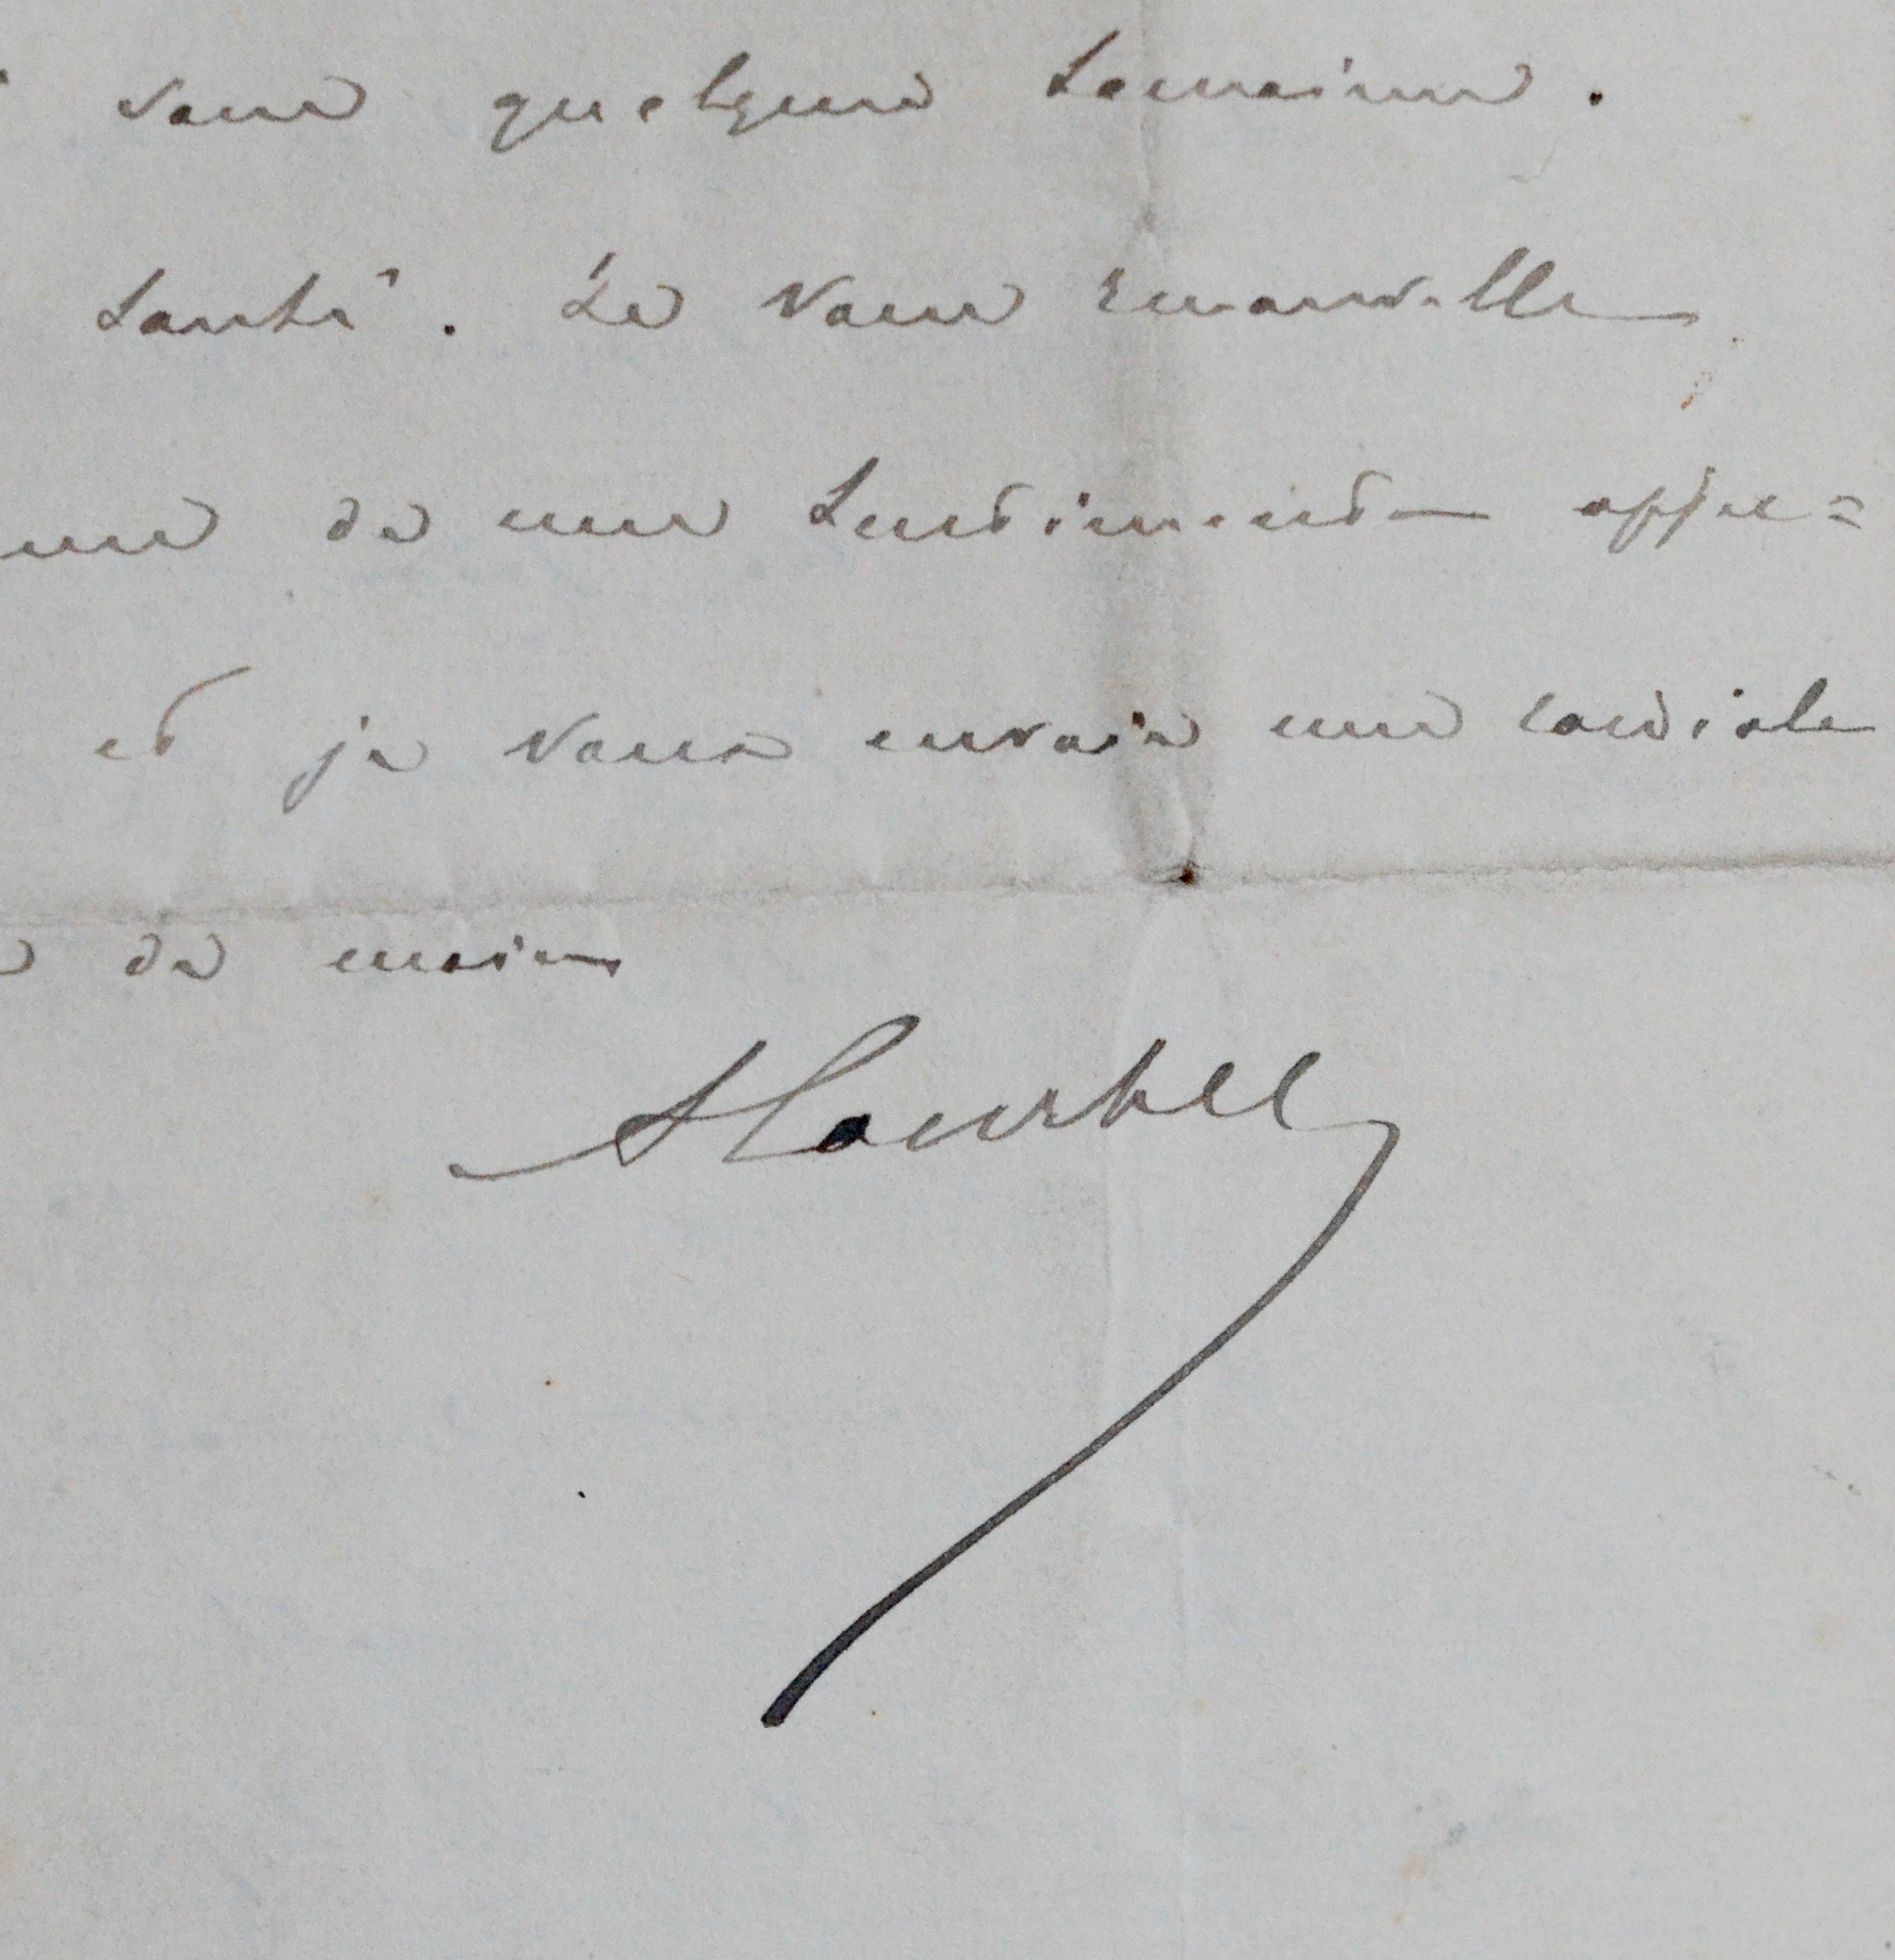 dans quelques semaines.
santé. Je vous renouvelle
de mes sentiments affec=
et je vous envoie une cordiale
de main